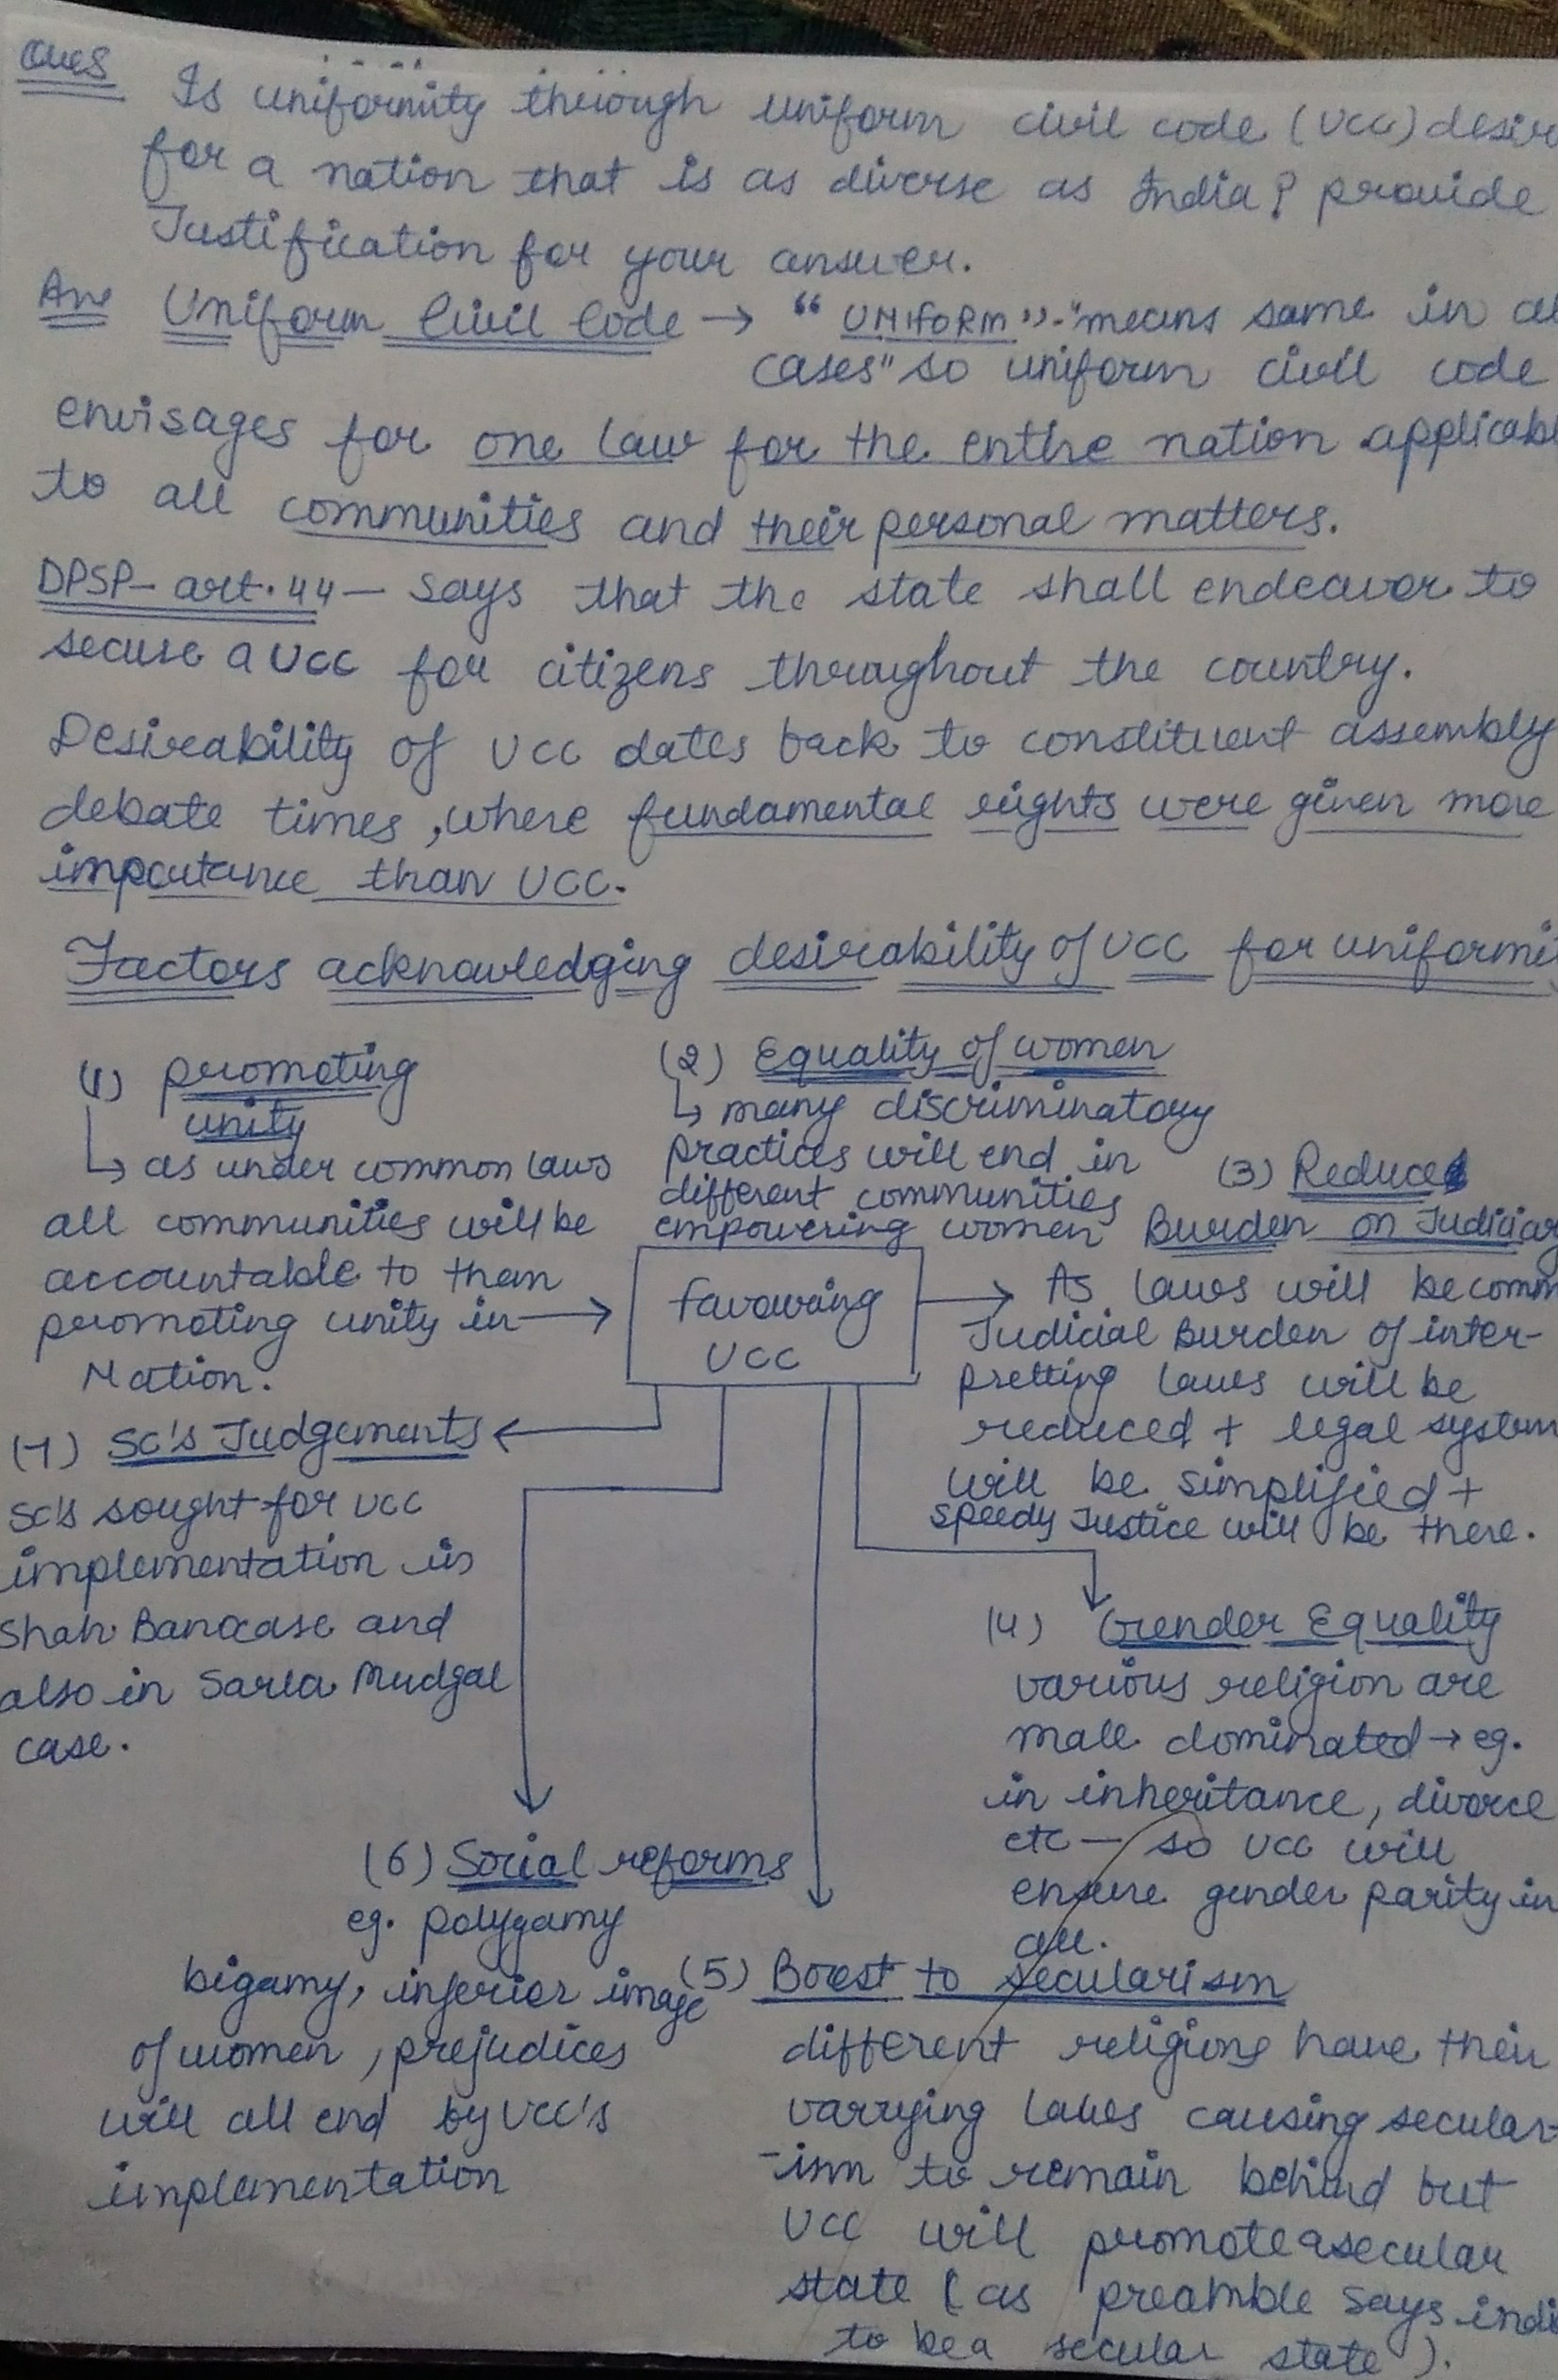 Ques Is uniformity through uniform civil code (UCC) desir
for a nation that is as diverse as India? provide
Justification for your answer.
Ans Uniform Civil Code → "UNIFORM"-"means same in al
cases" so uniform civil code
envisages for one law for the entire nation applicabl
to all communities and their personal matters.
DPSP- art.44- says that the state shall endeavor to
secure a UCC for citizens throughout the country.
Desirability of UCC dates back to constituent assembly
debate times, where fundamental rights were given more
importance than UCC.
Factors acknowledging desirability of UCC for uniformi
(1) promoting
unity
↳ as under common laws
all communities will be
accountable to them
promoting unity in →
Nation.
(2) Equality of women
↳ many discriminatory
practices will end in
different communities
empowering women
(3) Reduces
Burden on Judiciary
As laws will be comm
Judicial Burden of inter-
pretting laws will be
reduced + legal system
will be simplified +
speedy Justice will be there.
favouring
UCC
(7) SC's Judgements
SC's sought for UCC
implementation in
Shah Bano case and
also in Sarla Mudgal
case.
(4) Gender Equality
various religion are
male dominated → eg.
in inheritance, divorce
etc - so UCC will
ensure gender parity in
all.
(6) Social reforms
eg. polygamy
bigamy, inferior image
of women, prejudices
will all end by UCC's
implementation
(5) Boost to secularism
different religions have their
varrying laws causing secular-
-ism to remain behind but
UCC will promote a secular
state (as preamble says indi
to be a secular state).